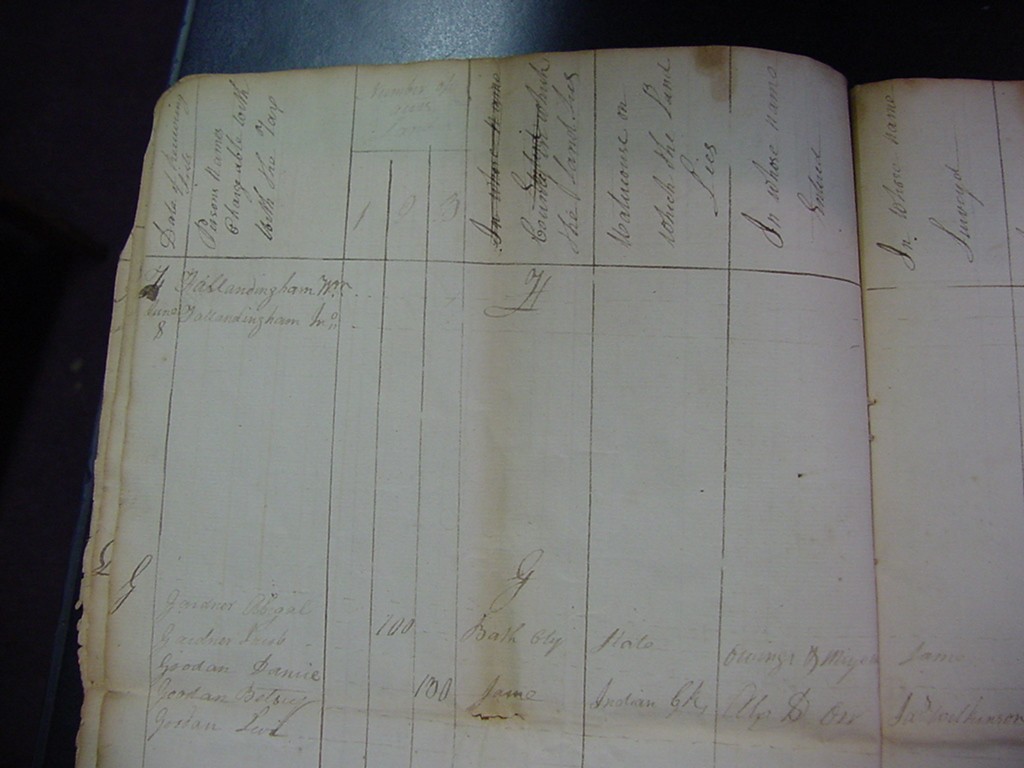 Date of receiving Lists
Persons Names Chargeable with with the Tax
Number of acres Land
1 2 3
In whose Name
County in which the Land Lies
Watercourse on which the Same Lies
In whose name Entered
In whose name Surveyed
F
Fallandingham Wm
June 8 Fallandingham Jno
G
G G
Gardner Abigal
Gardner 100 Bath Cty State Owings & same
Goodan Daniel
Jordan Betsey 100 same Indian Ck Alx D Orr Jas Wilkinson
Jordan Levi